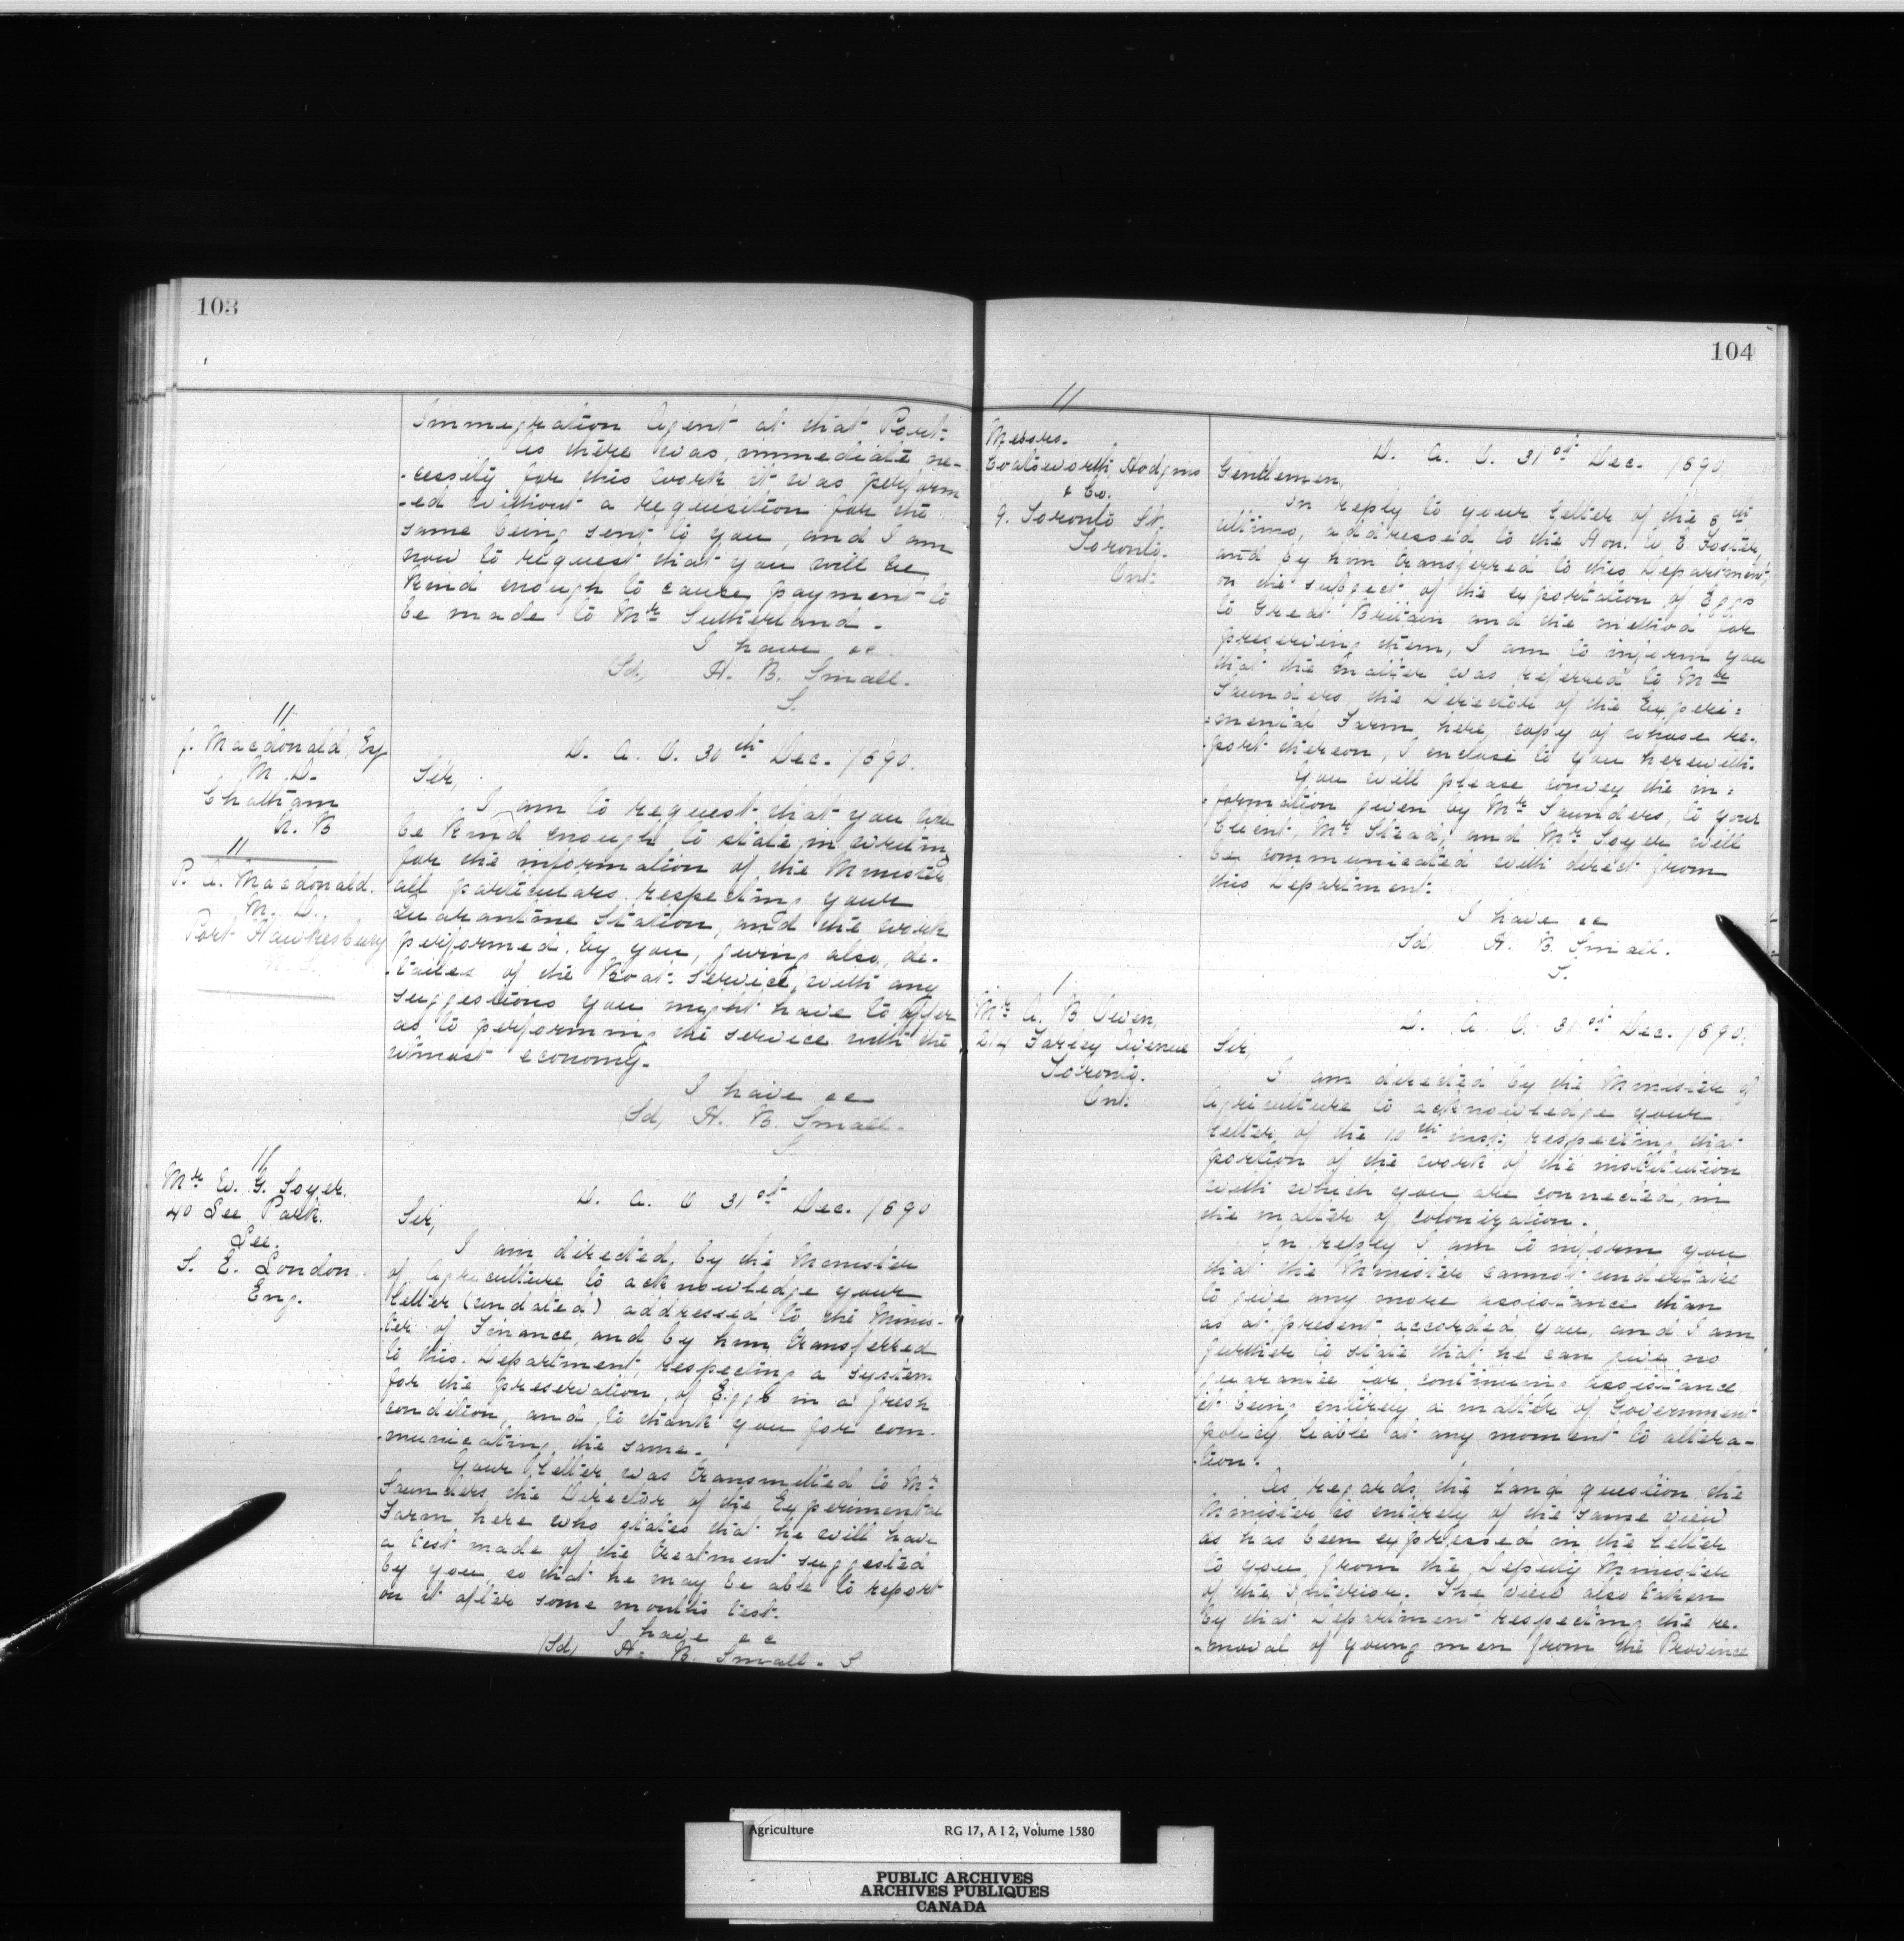 103
Immigration Agent at that Port.
As there was immediate ne-
-cessity for this work it was perform
-ed without a requisition for the
same being sent to you, and I am
now to request that you will be
kind enough to cause payment to
be made to Mr Sutherland.
I have &c
(Sd) H. B. Small.
S.
11
J. Macdonald, Esq
M.D.
Chatham
N. B
11
P. A. Macdonald.
M. D.
Port Hawkesbury
D. A. O. 30th Dec. 1890.
Sir,
I am to request that you will
be kind enough to state in writing
for the information of the Minister
all particulars respecting your
Quarantine Station, and the work
performed by you, giving also de-
-tailes of the Boat service, with any
suggestions you might have to offer
as to performing the service with the
utmost economy.
I have &c
(Sd) H. B. Small.
S.
11
Mr W. G. Soyer.
40 Lee Park.
Lee.
S. E. London.
Eng.
D. A. O 31st Dec. 1890
Sir,
I am directed, by the Minister
of Agriculture to acknowledge your
letter (undated) addressed to the Minis-
-ter of Finance, and by him transferred
to this Department, respecting a system
for the preservation of Eggs in a fresh
condition, and to thank you for com-
-municating the same.
Your letter was transmitted to Mr
Saunders the Director of the Experimental
Farm here who states that he will have
a test made of the treatment suggested
by you, so that he may be able to report
on it after some months test.
I have &c
(Sd) H. B. Small. S
104
11
Messrs.
Coatsworth, Hodgins
& Co.
9. Toronto St.
Toronto.
Ont.
D. A. O. 31st Dec. 1890
Gentlemen,
In reply to your letter of the 6th
ultimo, addressed to the Hon. G. E. Foster,
and by him transferred to this Department,
on the subject of the exportation of Eggs
to Great Britain, and the method for
preserving them, I am to inform you
that the matter was referred to Mr
Saunders the Director of the Experi=
=mental Farm here, copy of whose re-
-port thereon, I enclose to you herewith.
You will please convey the in=
=formation given by Mr Saunders, to your
Client, Mr Stead, and Mr Soyer will
be communicated with direct from
this Department.
I have &c
(Sd) H. B. Small.
S.
1
Mr A. B. Owen,
214 Farley Avenue
Toronto.
Ont.
D. A. O. 31st Dec. 1890.
Sir,
I am directed by the Minister of
Agriculture, to acknowledge your
letter of the 10th inst, respecting that
portion of the work of the institution
with which you are connected, in
the matter of colonization.
In reply I am to inform you
that the Minister cannot undertake
to give any more assistance than
as at present accorded you, and I am
further to state that he can give no
guarantee for continuing assistance,
it being entirely a matter of Government
policy liable at any moment to altera-
-tion.
As regards the Land question the
Minister is entirely of the same view
as has been expressed in the letter
to you from the Deputy Minister
of the Interior. The view also taken
by that Department respecting the re-
-moval of young men from the Province
Agriculture
RG 17, A I 2, Volume 1580
PUBLIC ARCHIVES
ARCHIVES PUBLIQUES
CANADA